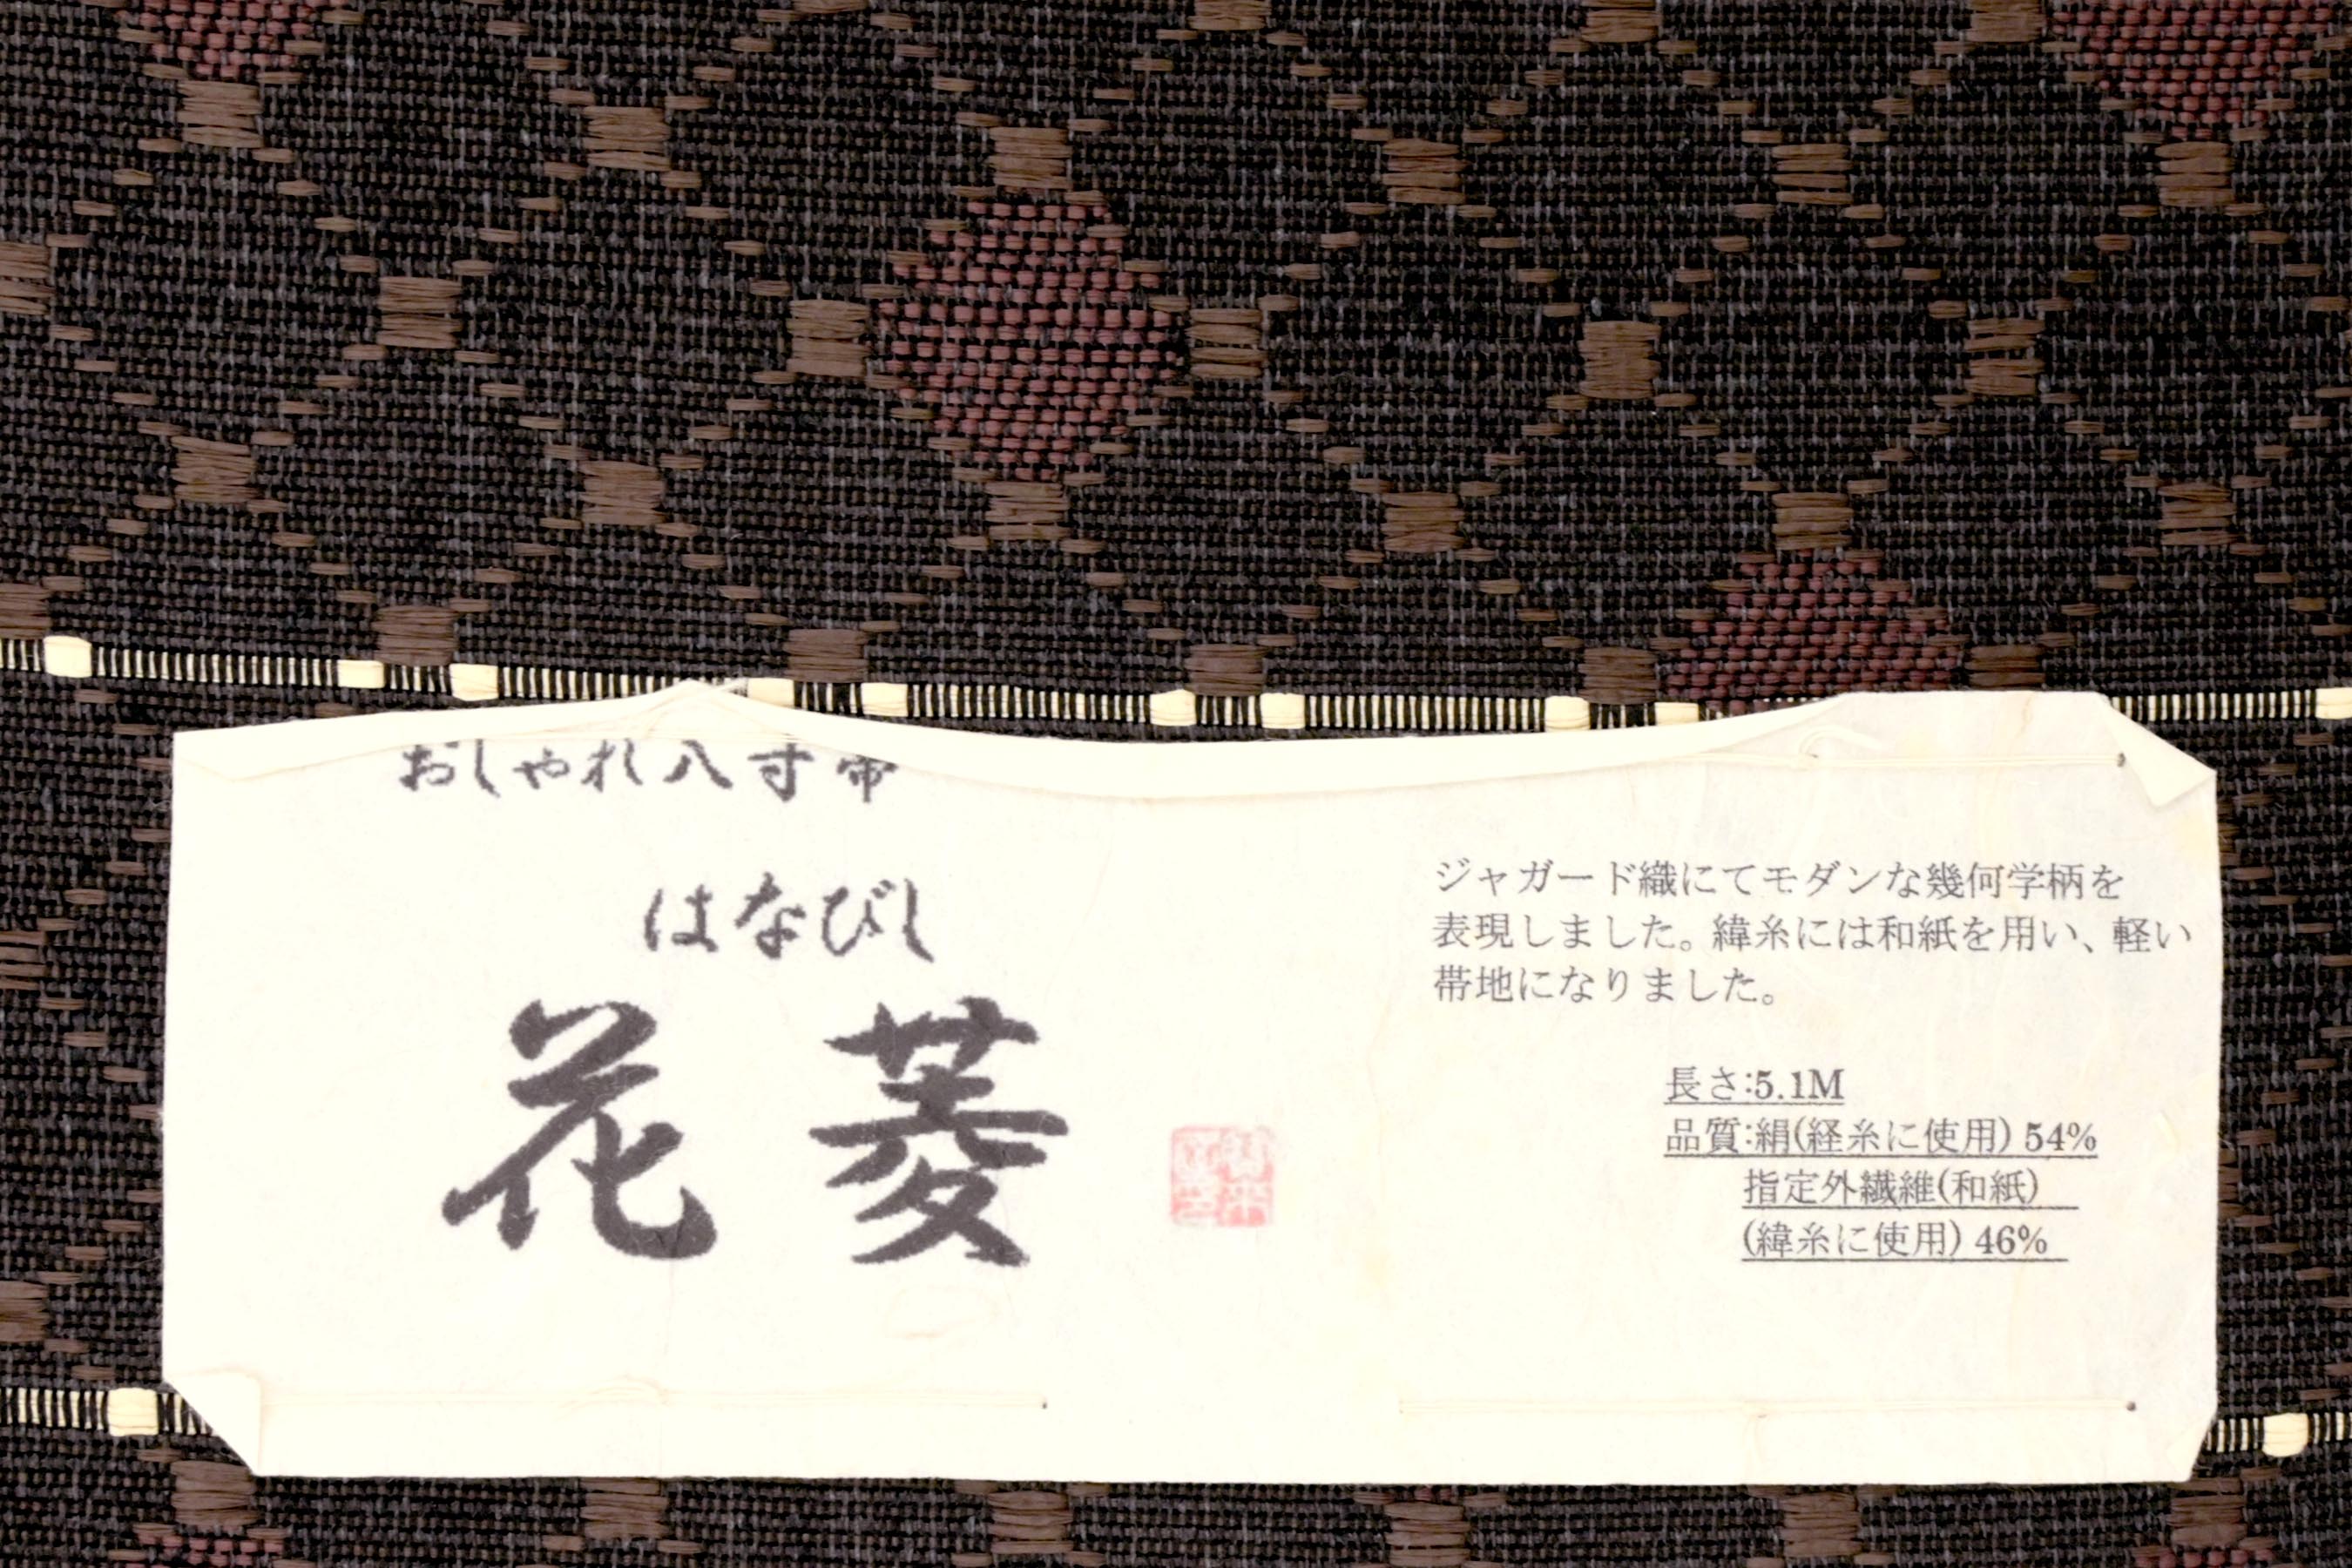 おしゃれ八寸帯
はなびし
花菱
ジャガード織にてモダンな幾何学柄を
表現しました。緯糸には和紙を用い、軽い
帯地になりました。
長さ:5.1M
品質:絹(経糸に使用) 54%
指定外繊維(和紙)
(緯糸に使用) 46%